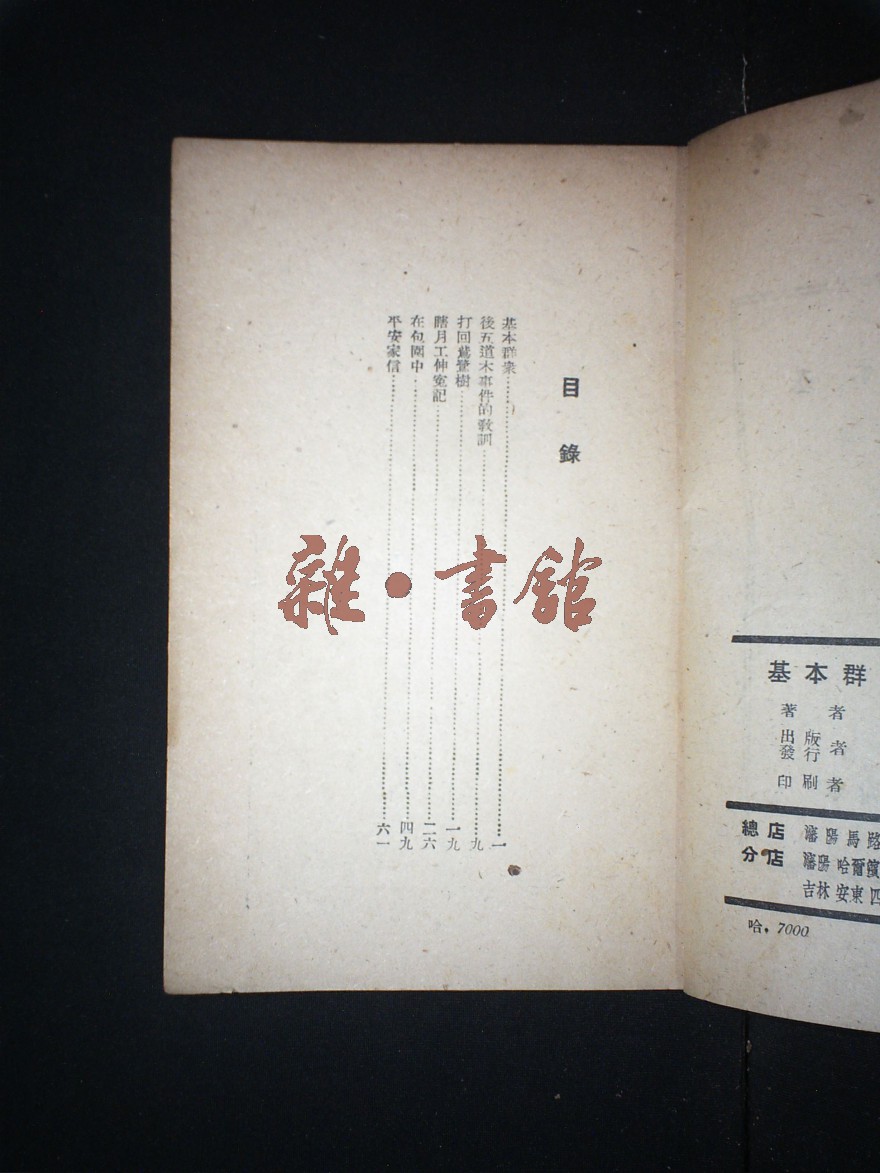 目錄
基本群衆……一
後五道木事件的教訓……九
打回鴛鴦樹……一九
瞎月工伸寃記……二六
在包圍中……四九
平安家信……六一
雜·書舘
基本群
著者
出版者
發行
印刷者
總店 瀋陽馬路
分店 瀋陽 哈爾濱
吉林 安東 四
哈. 7000